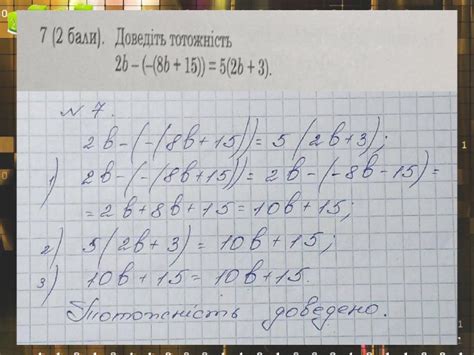 7 (2 бали). Доведіть тотожність
2b – (–(8b + 15)) = 5(2b + 3).
№ 7.
2b-(-(8b+15))= 5 (2b+3);
1) 2b-(-(8b+15))= 2b-(-8b-15)=
=2b+8b+15=10b+15;
2) 5(2b+3)=10b+15;
3) 10b+15=10b+15.
Тотожність доведено.